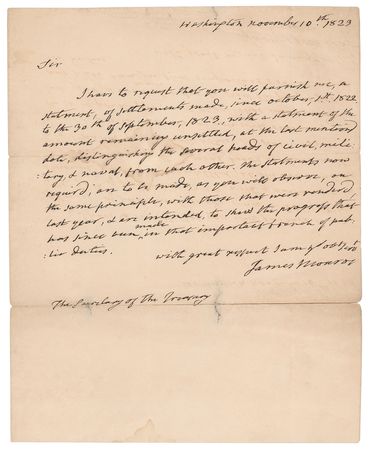 Washington november 10.th 1823
Sir
I have to request that you will furnish me, a
statment, of settlements made, since october, 1st, 1822
to the 30th of september, 1823, with a statment of the
amount remaining unsettled, at the last mention'd
date, distinguishing the several heads of civil, mili=
:tary, & naval, from each other. The statments now
requird, are to be made, as you will observe, on
the same principle, with those that were rendered
last year, & are intended, to shew the progress that
has since been made in that important branch of pub=
:lic duties.
with great respect I am yr obt servt
James Monroe
The Secretary of the Treasury